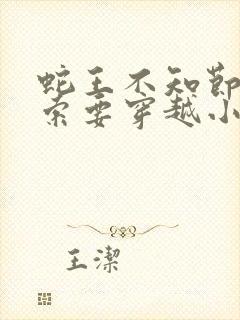 蛇王不知節
索要穿越小
王潔